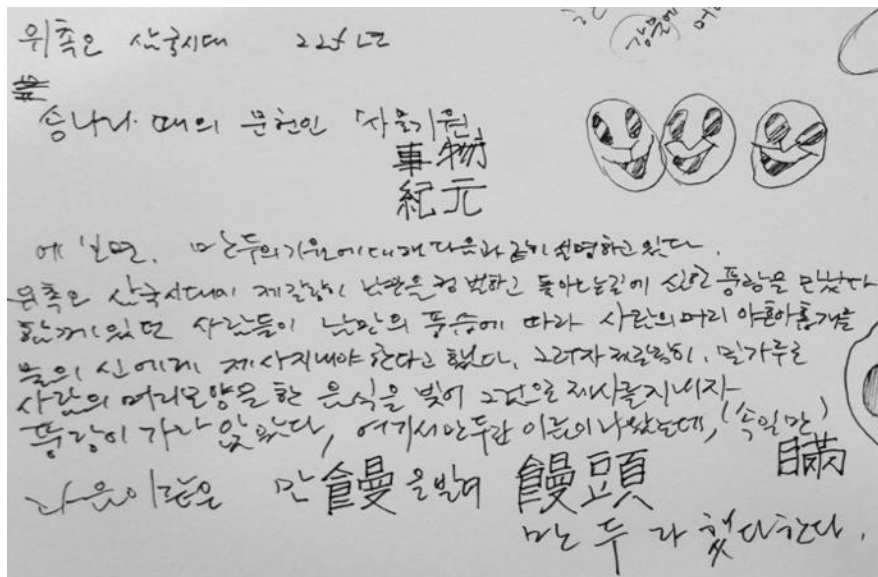 위촉오 삼국시대 225년
강물에
송나라 때의 문헌인 「사물기원」
事物
紀元
에 보면, 만두의 기원에 대해 다음과 같이 설명하고 있다.
위촉오 삼국시대에 제갈량이 남만을 정벌하고 돌아오는길에 심한 풍랑을 만났다
함께 있던 사람들이 남만의 풍습에 따라 사람의 머리 아흔아홉개를
물의 신에게 제사지내야 한다고 했다. 그러자 제갈량이, 밀가루로
사람의 머리모양을 한 음식을 빚어 그것으로 제사를 지내자
풍랑이 가라 앉았다, 여기서 만두란 이름이 나왔는데, (속일 만)
瞞
다음이같은 만 饅을 빌려 饅頭
만두라 했다 한다.